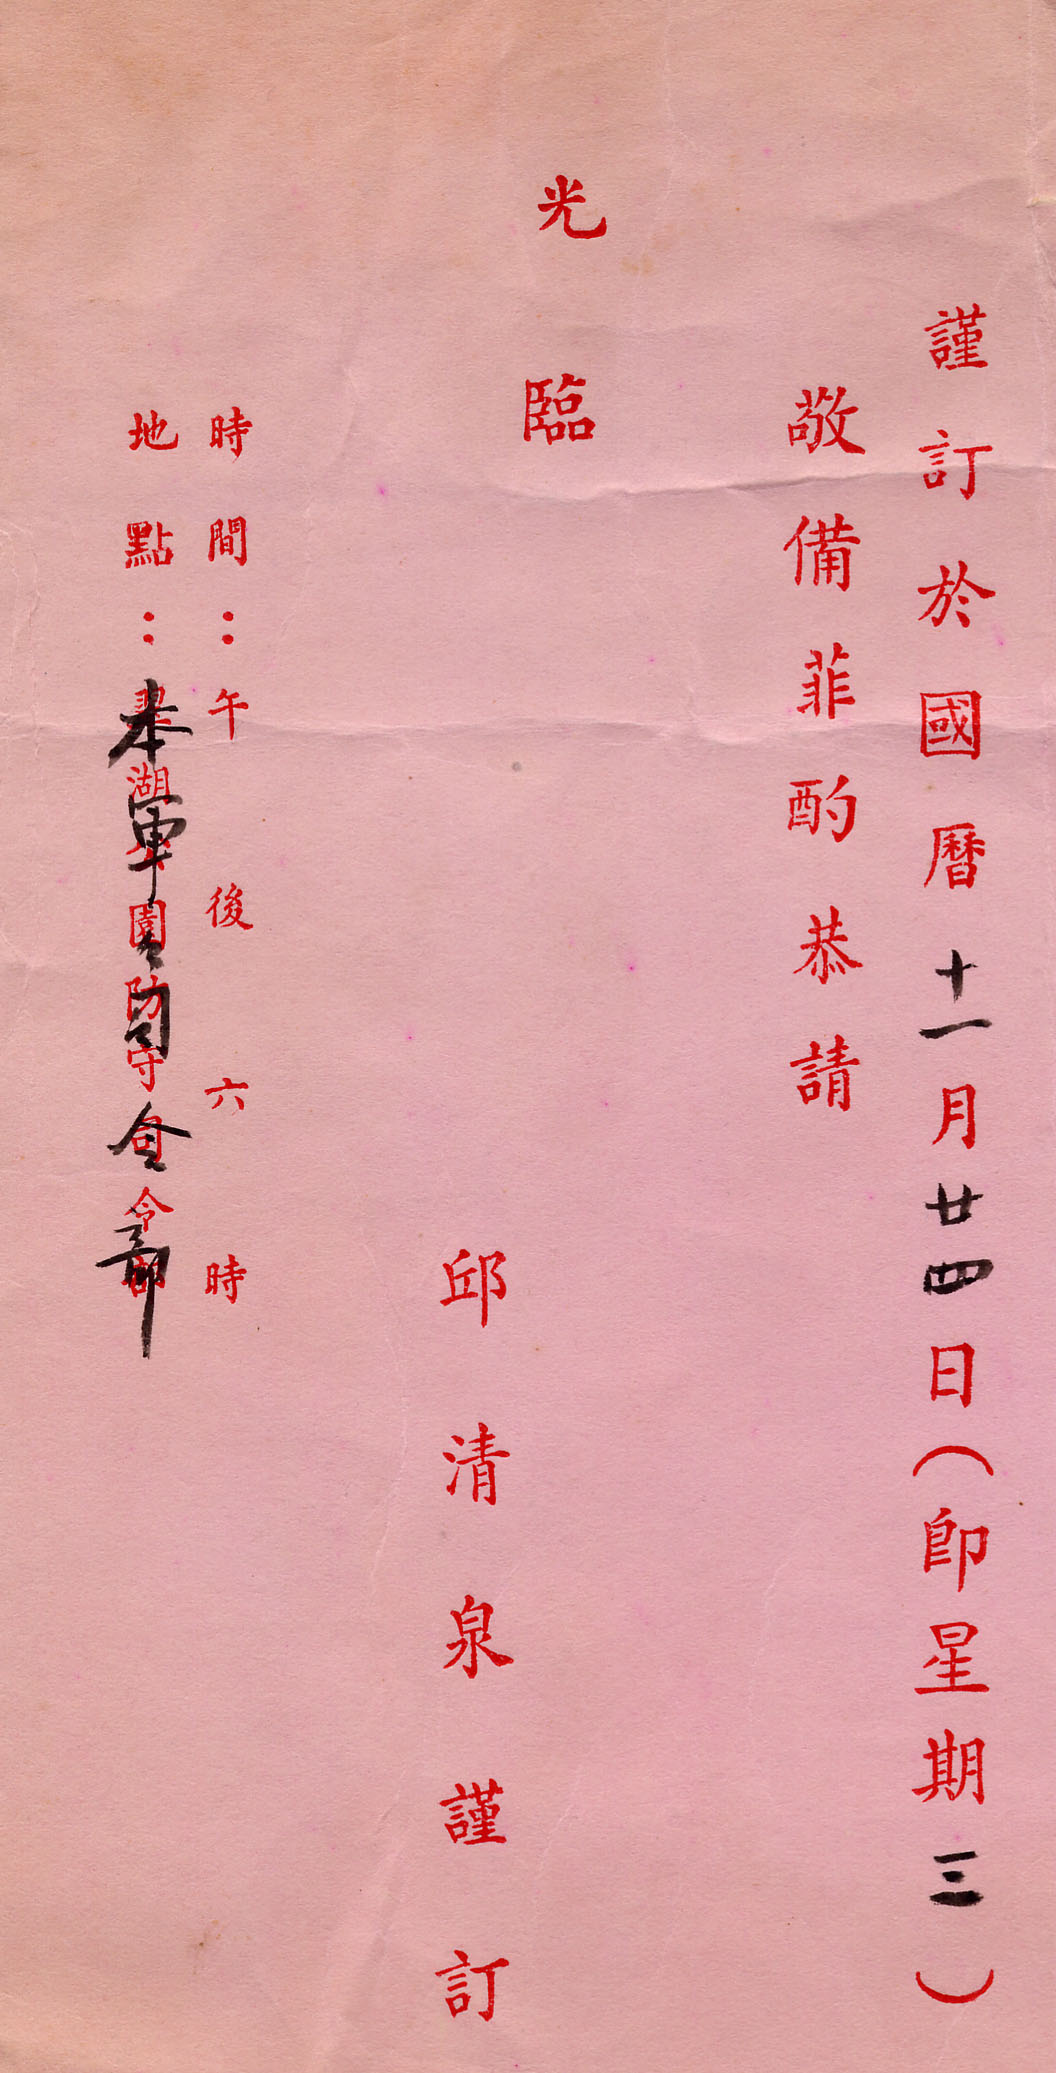 謹訂於國曆十一月廿四日（卽星期三）
敬備菲酌恭請
光臨
邱清泉謹訂
時間：午後六時
地點：本軍司令部